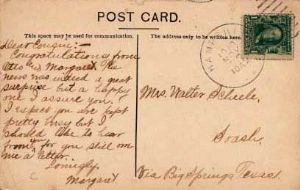 POST CARD.
This space may be used for communication.
The address only to be written here.
Dear Cousin:-
Congratulations from
Otto & Margaret. The
news was indeed a great
surprise but a happy
one I assure you.
I expect you are kept
pretty busy but I
should like to hear
from you, for you still owe
me a letter.
Lovingly,
Margaret
Mrs. Walter Schiele.
Soash.
Via Big Springs Texas.